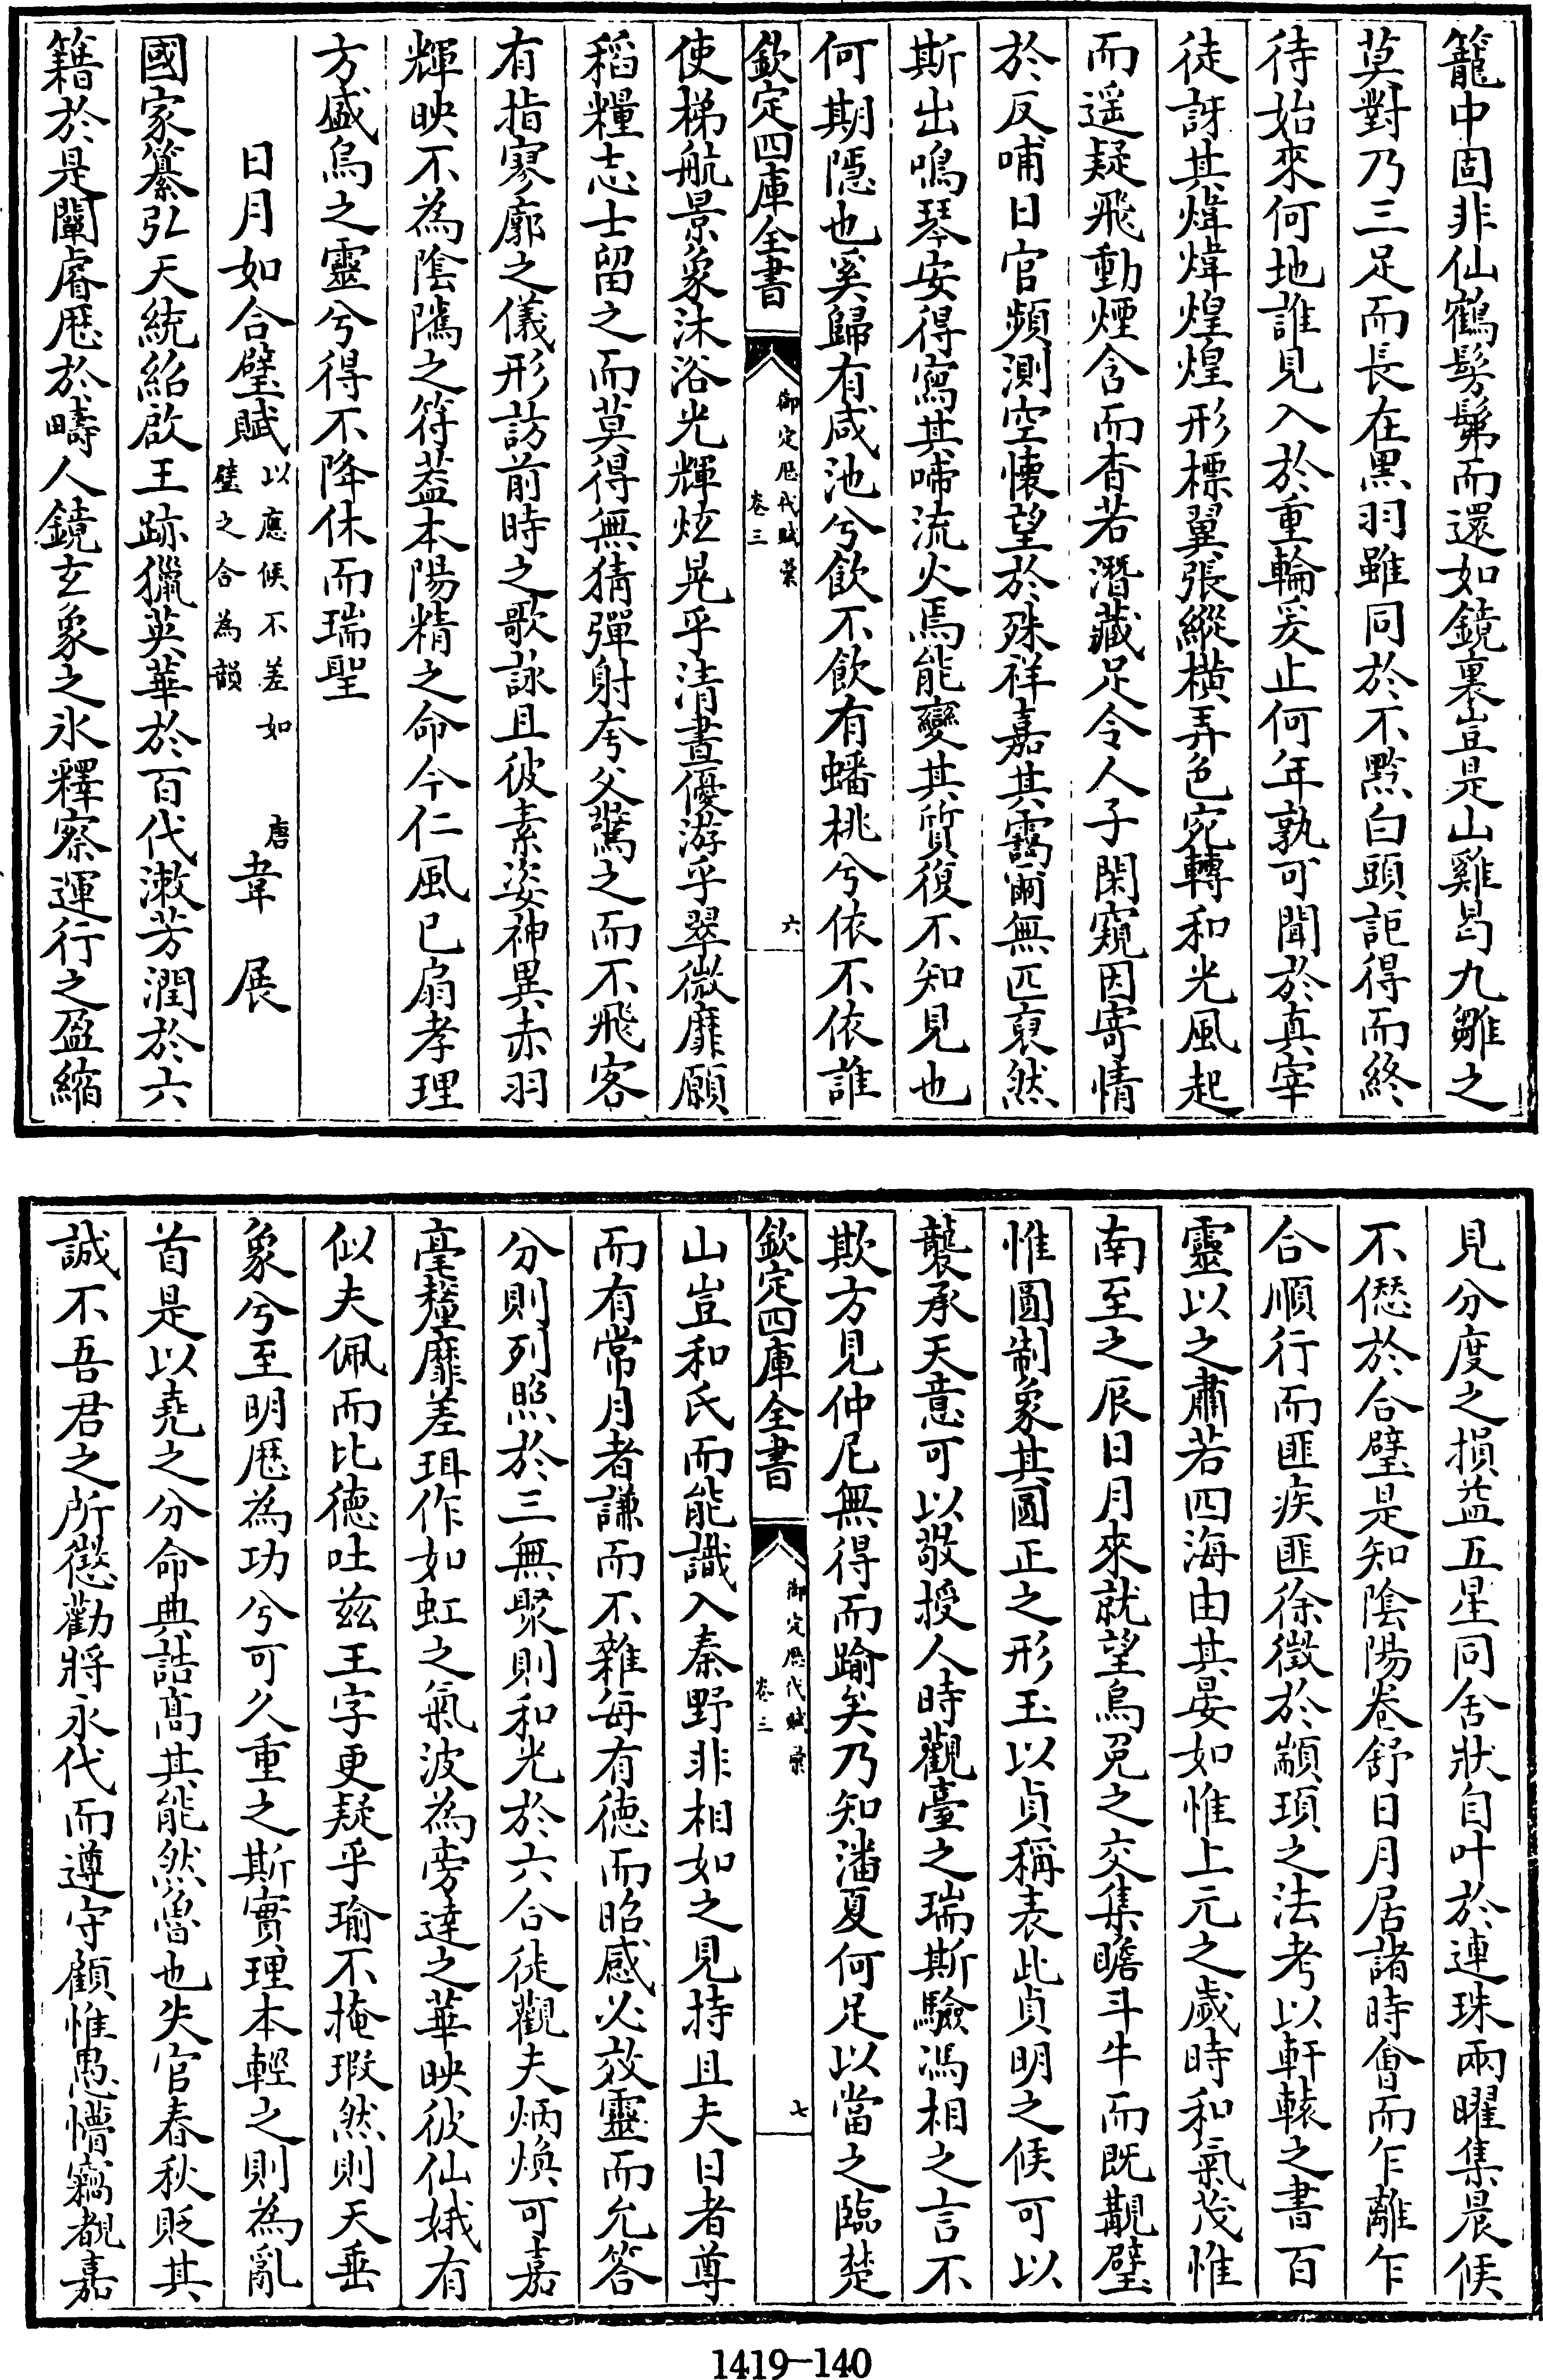 籠中固非仙鶴髣髴而還如鏡裏豈是山雞曷九雛之
莫對乃三足而長在黑羽雖同於不黔白頭詎得而終
待始來何地誰見入於重輪爰止何年孰可聞於真宰
徒訝其煒煒煌煌形標翼張縱橫弄色宛轉和光風起
而遥疑飛動煙含而杳若潛藏足令人子閑窺因寄情
於反哺日官頻測空懷望於殊祥嘉其靄爾無匹裒然
斯出鳴琴安得寫其啼流火焉能變其質復不知見也
何期隱也奚歸有咸池兮飲不飲有蟠桃兮依不依誰
欽定四庫全書
御定歷代賦彙
卷三
六
使梯航景象沐浴光輝炫晃乎清晝優游乎翠微靡願
稻糧志士留之而莫得無猜彈射夸父驚之而不飛客
有指寥廓之儀形訪前時之歌詠且彼素姿神異赤羽
輝映不為陰隲之符葢本陽精之命今仁風已扇孝理
方盛烏之靈兮得不降休而瑞聖
日月如合璧賦
以應候不差如
璧之合為韻
唐
韋展
國家纂弘天統紹啟王跡獵英華於百代漱芳潤於六
籍於是闡睿厯於疇人鏡玄象之氷釋察運行之盈縮
見分度之損益五星同舍狀自叶於連珠兩曜集晨候
不僁於合璧是知陰陽卷舒日月居諸時會而乍離乍
合順行而匪疾匪徐徵於顓頊之法考以軒轅之書百
靈以之肅若四海由其晏如惟上元之歲時和氣茂惟
南至之辰日月來就望烏兎之交集瞻斗牛而既覯璧
惟圓制象其圓正之形玉以貞稱表此貞明之候可以
襲承天意可以敬授人時觀臺之瑞斯驗馮相之言不
欺方見仲尼無得而踰矣乃知潘夏何足以當之臨楚
欽定四庫全書
御定歷代賦彙
卷三
七
山豈和氏而能識入秦野非相如之見持且夫日者尊
而有常月者謙而不雜每有徳而昭感必效靈而允答
分則列照於三無聚則和光於六合徒觀夫炳煥可嘉
毫釐靡差珥作如虹之氣波為旁達之華映彼仙娥有
似夫佩而比徳吐兹王字更疑乎瑜不掩瑕然則天垂
象兮至明厯為功兮可久重之斯實理本輕之則為亂
首是以堯之分命典誥髙其能然魯也失官春秋貶其
誠不吾君之所懲勸將永代而遵守顧惟愚懵竊覩嘉
1419-140